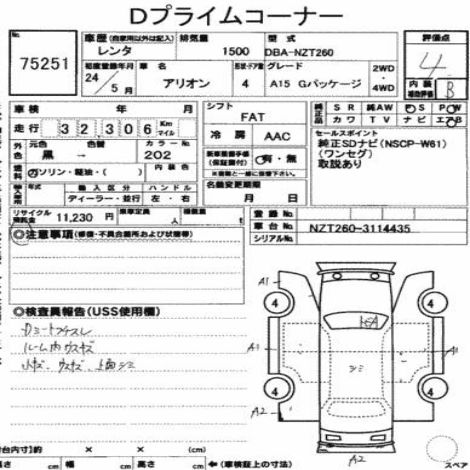 Dプライムコーナー
No.
75251
車歴(自家用以外は記入) 排気量 型式
レンタ 1500 DBA-NZT260
初度登録年月 車名 形状・ドア数 グレード 2WD・4WD
24年 5月 アリオン 4 A15 Gパッケージ
評価点
4
内装 補助評価 B
車検 年 月
走行 32306 Km マイル
外色 元色 色替 カラーNo. 内装色
黒→ 202
燃料 ガソリン・軽油・( )
輸入車 年式 輸入区分 ハンドル
ディーラー・並行 左・右
リサイクル預託金 11,230円 乗車定員 名 積載量 t
シフト
FAT
冷房 AAC
新車整備手帳(保証書付) 有・無
名義変更期限
月 日
純正品 SR 純AW PS PW
カワ TV ナビ エアB
セールスポイント
純正SDナビ(NSCP-W61)
(ワンセグ)
取説あり
登録No.
車台No. NZT260-3114435
シリアルNo.
◎注意事項(修復・不具合箇所および状態等)
◎検査員報告(USS使用欄)
ルーム内ウスキズ
小キズ、ウスキズ、
A1
4
4
A1
A1
シミ
4
4
A2
A2
スペア
荷台内寸]約 × × (cm)
長さ cm 幅 cm 高さ cm ←(車検証上の寸法)